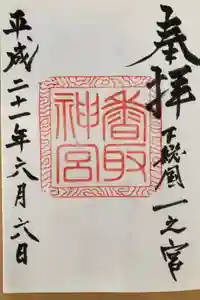 奉拝
下総國一之宮
香取神宮
平成二十一年六月六日